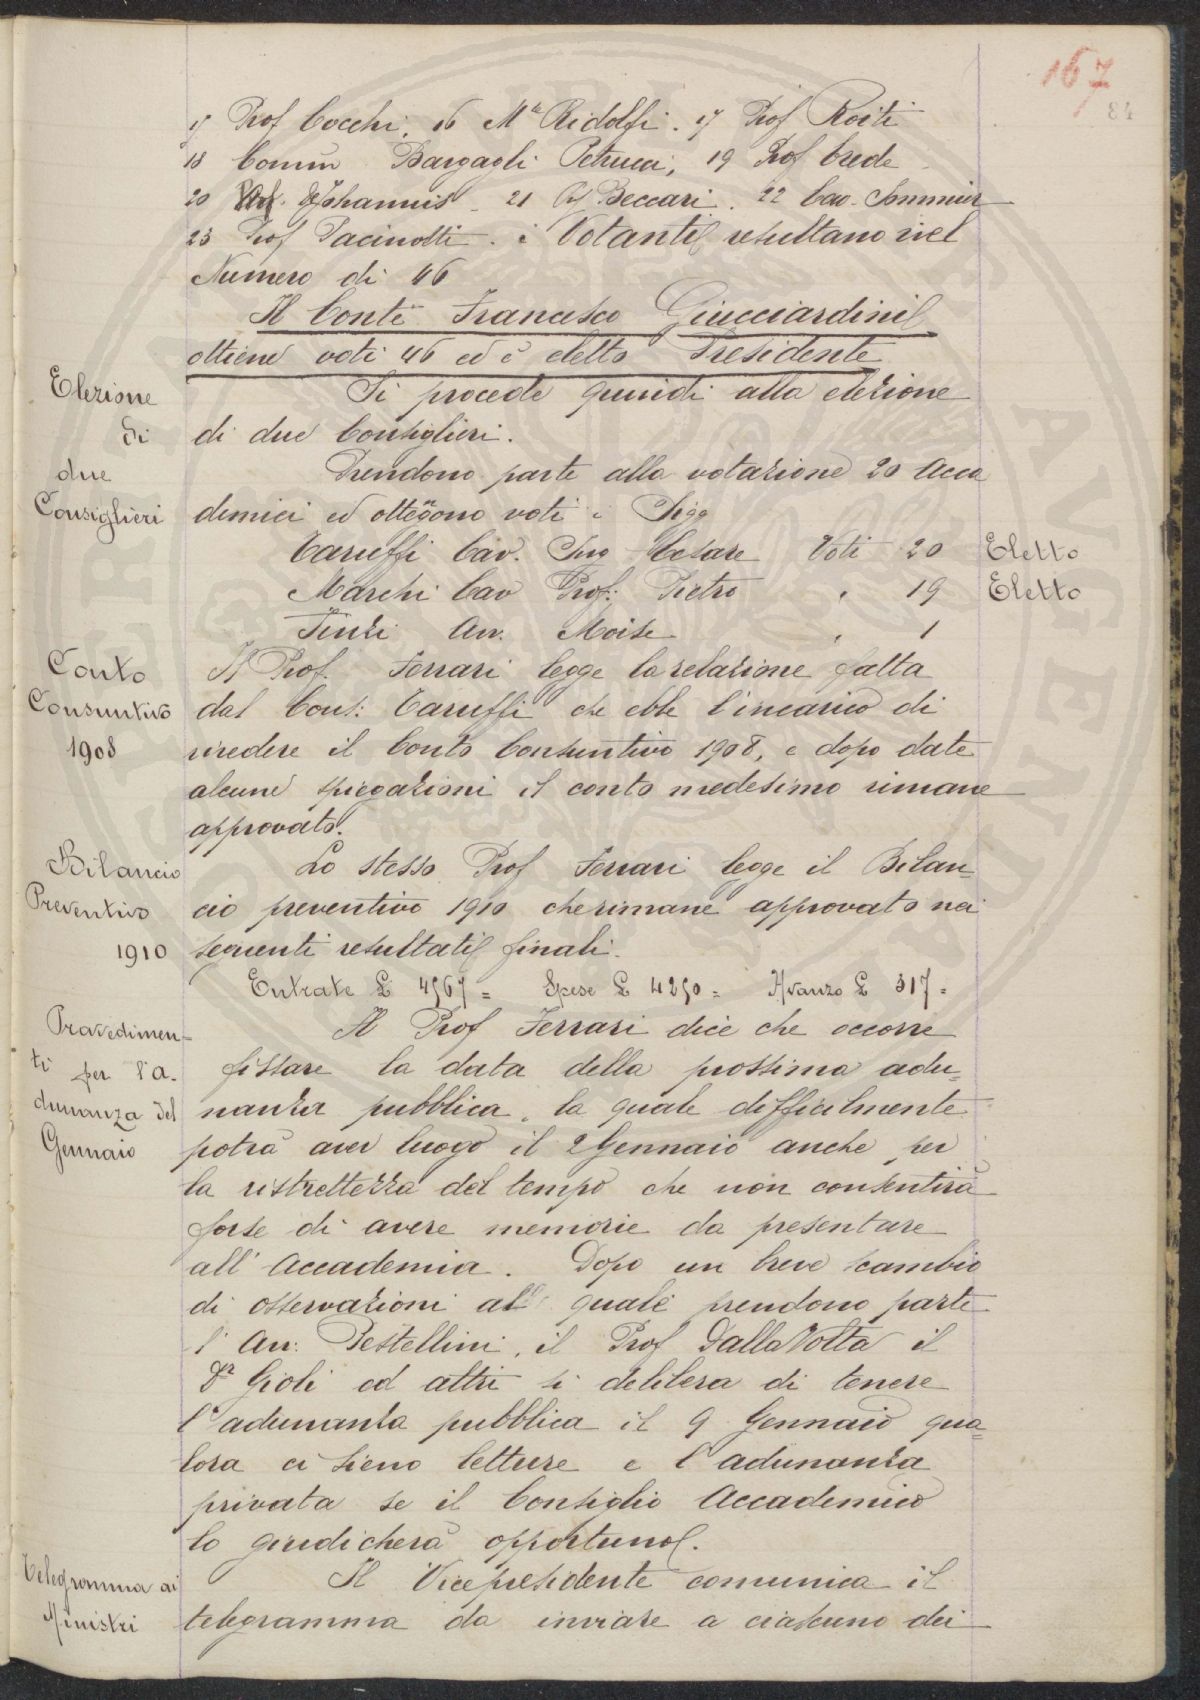 167
84
15 Prof Cocchi, 16 Mse Ridolfi. 17 Prof Roiti
18 Comm Bargagli Petrucci, 19 Prof Crede
20 De Johannis 21 Beccari. 22 Cav. Sommier
23 Prof Pacinotti. i Votanti resultano nel
Numero di 46
Il Conte Francesco Giucciardini
ottiene voti 46 ed è eletto Presidente
Elezione
di
due
Consiglieri
Si procede quindi alla elezione
di due Consiglieri.
Prendono parte alla votazione 20 Acca
demici ed ottegono voti i Sigg
Caruffi Cav. Ing Cesare Voti 20 Eletto
Marchi Cav Prof: Pietro " 19 Eletto
Finzi Avv. Moise " 1
Conto
Consuntivo
1908
Il Prof. Ferrari legge la relazione fatta
dal Cons: Caruffi che ebbe l'incarico di
rivedere il Conto Consuntivo 1908, e dopo date
alcune spiegazioni il conto medesimo rimane
approvato.
Bilancio
Preventivo
1910
Lo stesso Prof Ferrari legge il Bilan-
cio preventivo 1910 che rimane approvato nei
seguenti resultati finali.
Entrate £ 4567= Spese £ 4250= Avanzo £ 317=
Pravedimen-
ti per l'a.
dunanza del
Gennaio
Il Prof Ferrari dice che occorre
fissare la data della prossima adu-
nanza pubblica, la quale difficilmente
potrà aver luogo il 2 Gennaio anche per
la ristrettezza del tempo che non consentirà
forse di avere memorie da presentare
all'Accademia. Dopo un breve scambio
di osservazioni al quale prendono parte
l'Avv: Pestellini, il Prof Dalla Volta il
Dr Gioli ed altri si delibera di tenere
l'adunanza pubblica il 9 Gennaio qua-
lora ci sieno letture e l'adunanza
privata se il Consiglio Accademico
lo giudicherà opportuno.
Telegramma ai
Ministri
Il Vicepresidente comunica il
telegramma da inviare a ciascuno dei